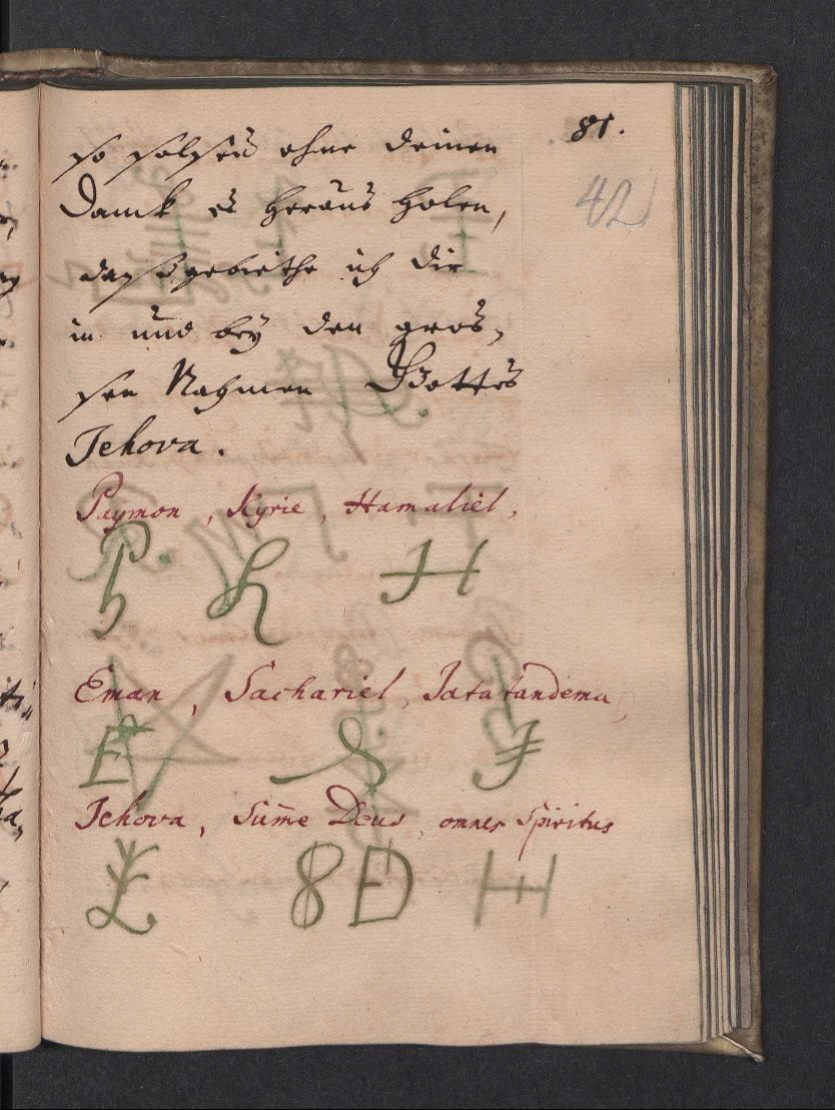 81.
42
so solchen ohne deinen
Danck es heraus holen,
daß gebiethe ich dir
in und bey den gros,
sen Nahmen Gottes
Jehova.
Paymon, Kyrie, Hamaliel,
P. K H
Eman, Sachariel, Tatatandema,
E S J
Jehova, Sum̄e Deus, omnes Spiritus
8 D H